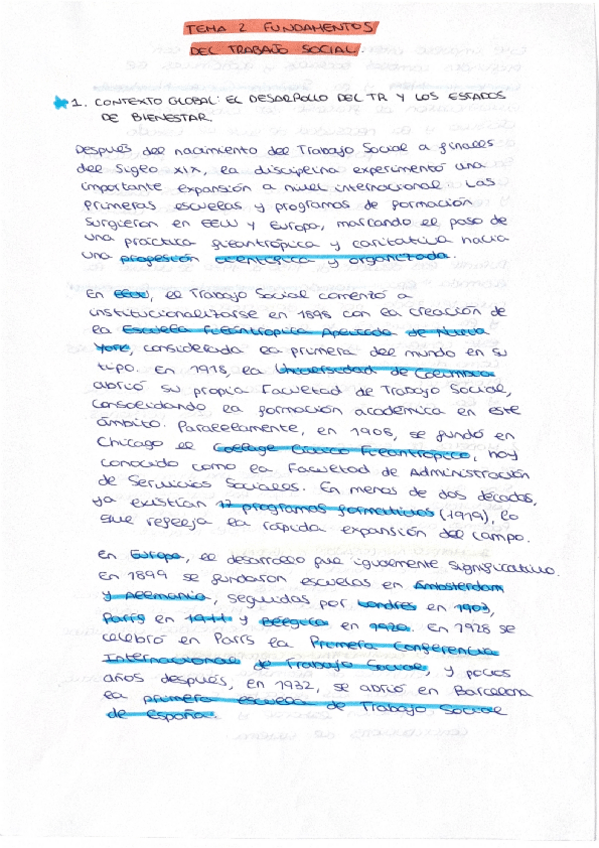 TEMA 2 FUNDAMENTOS
DEL TRABAJO SOCIAL.
1. CONTEXTO GLOBAL: EL DESARROLLO DEL TR Y LOS ESTADOS
DE BIENESTAR
Después del nacimiento del Trabajo Social a finales
del siglo XIX, la disciplina experimentó una
importante expansión a nivel internacional. Las
primeras escuelas y programas de formación
surgieron en EEUU y Europa, marcando el paso de
una práctica filantrópica y caritativa hacia
una profesión científica y organizada.
En EEUU, el Trabajo Social comenzó a
institucionalizarse en 1898 con la creación de
la Escuela Filantrópica Aplicada de Nueva
York, considerada la primera del mundo en su
tipo. En 1915, la Universidad de Columbia
abrió su propia Facultad de Trabajo Social,
consolidando la formación académica en este
ámbito. Paralelamente, en 1908, se fundó en
Chicago el College Cívico Filantrópico, hoy
conocido como la Facultad de Administración
de Servicios Sociales. En menos de dos décadas,
ya existían 17 programas formativos (1919), lo
que refleja la rápida expansión del campo.
En Europa, el desarrollo fue igualmente significativo.
En 1899 se fundaron escuelas en Amsterdam
y Alemania, seguidas por Londres en 1903,
París en 1911 y Bélgica en 1920. En 1928 se
celebró en París la Primera Conferencia
Internacional de Trabajo Social, y pocos
años después, en 1932, se abrió en Barcelona
la primera escuela de Trabajo Social
de España.